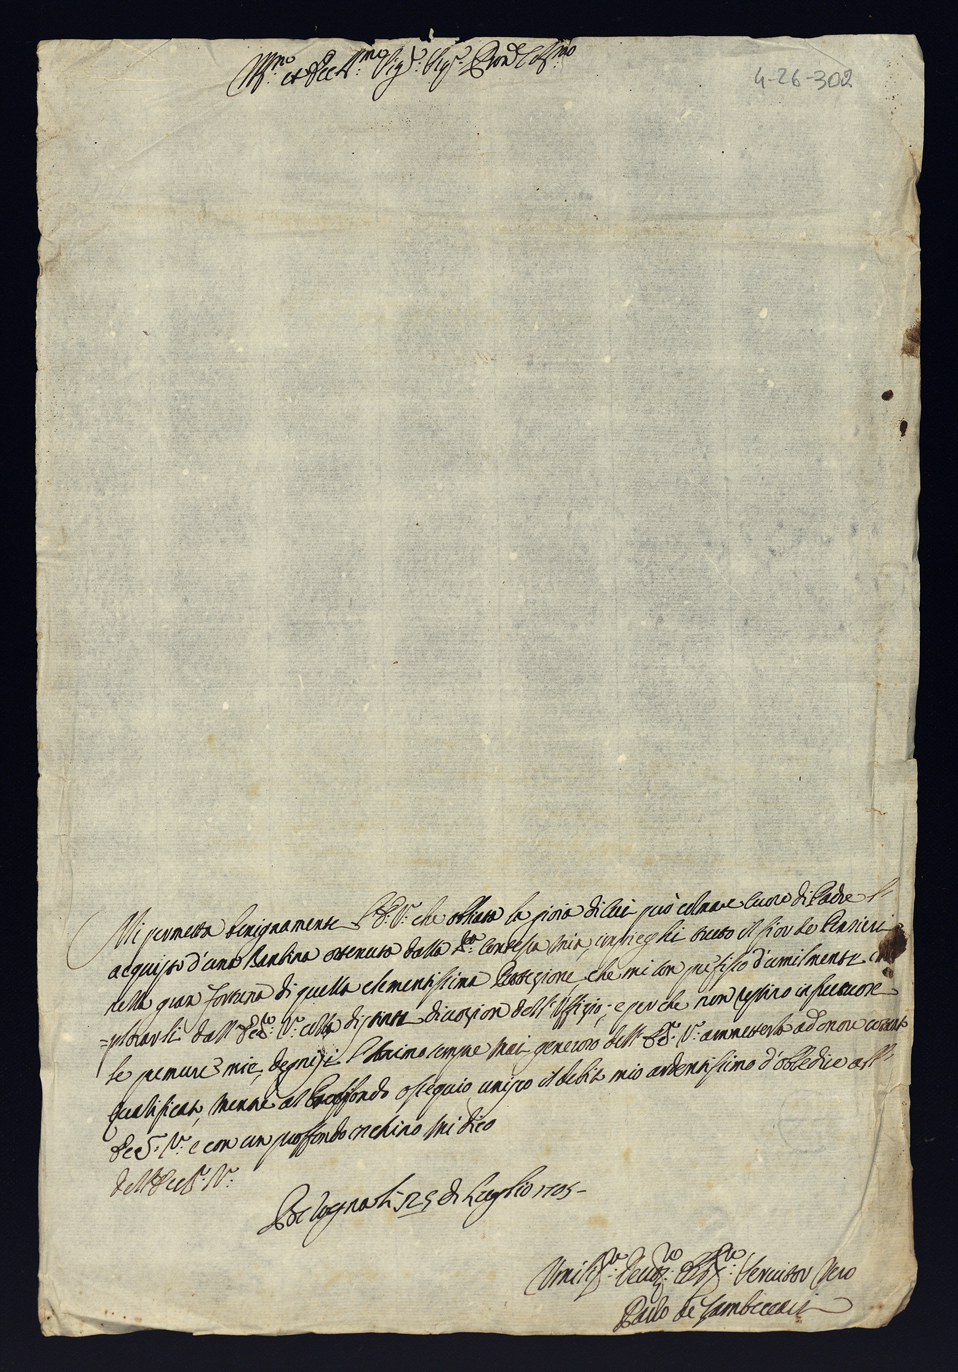 Ill.mo et Ecc.mo Sig.r Sig.r Pron Col.mo
4-26-302
Mi permetta benignamente l'E. V. che oltre la gioia di cui può colmare cuore di Padre l'
acquisto d'una Bambina ottenuta dalla Contessa mia, impieghi tutto il fior de Pensieri
nella gran fortuna di quella clementissima Protezione, che mi son prefisso d'umilmente
dall' Ecc. V. colla distinta dell' Uffizio; e perche non restino
le premure mie, degnisi l'Animo sempre mai generoso dell' Ecc. V. ammetterle ad onore
qualificato, mentre al profondo ossequio unisco il debito mio ardentissimo d'obbedire all'
Ecc. V. e con un proffondo inchino mi dico
dell' Ecc. V.
Bologna li 25 di Luglio 1705
Umiliss.mo Devot.mo Obb.mo Servitor Vero
Paolo de Zambeccari